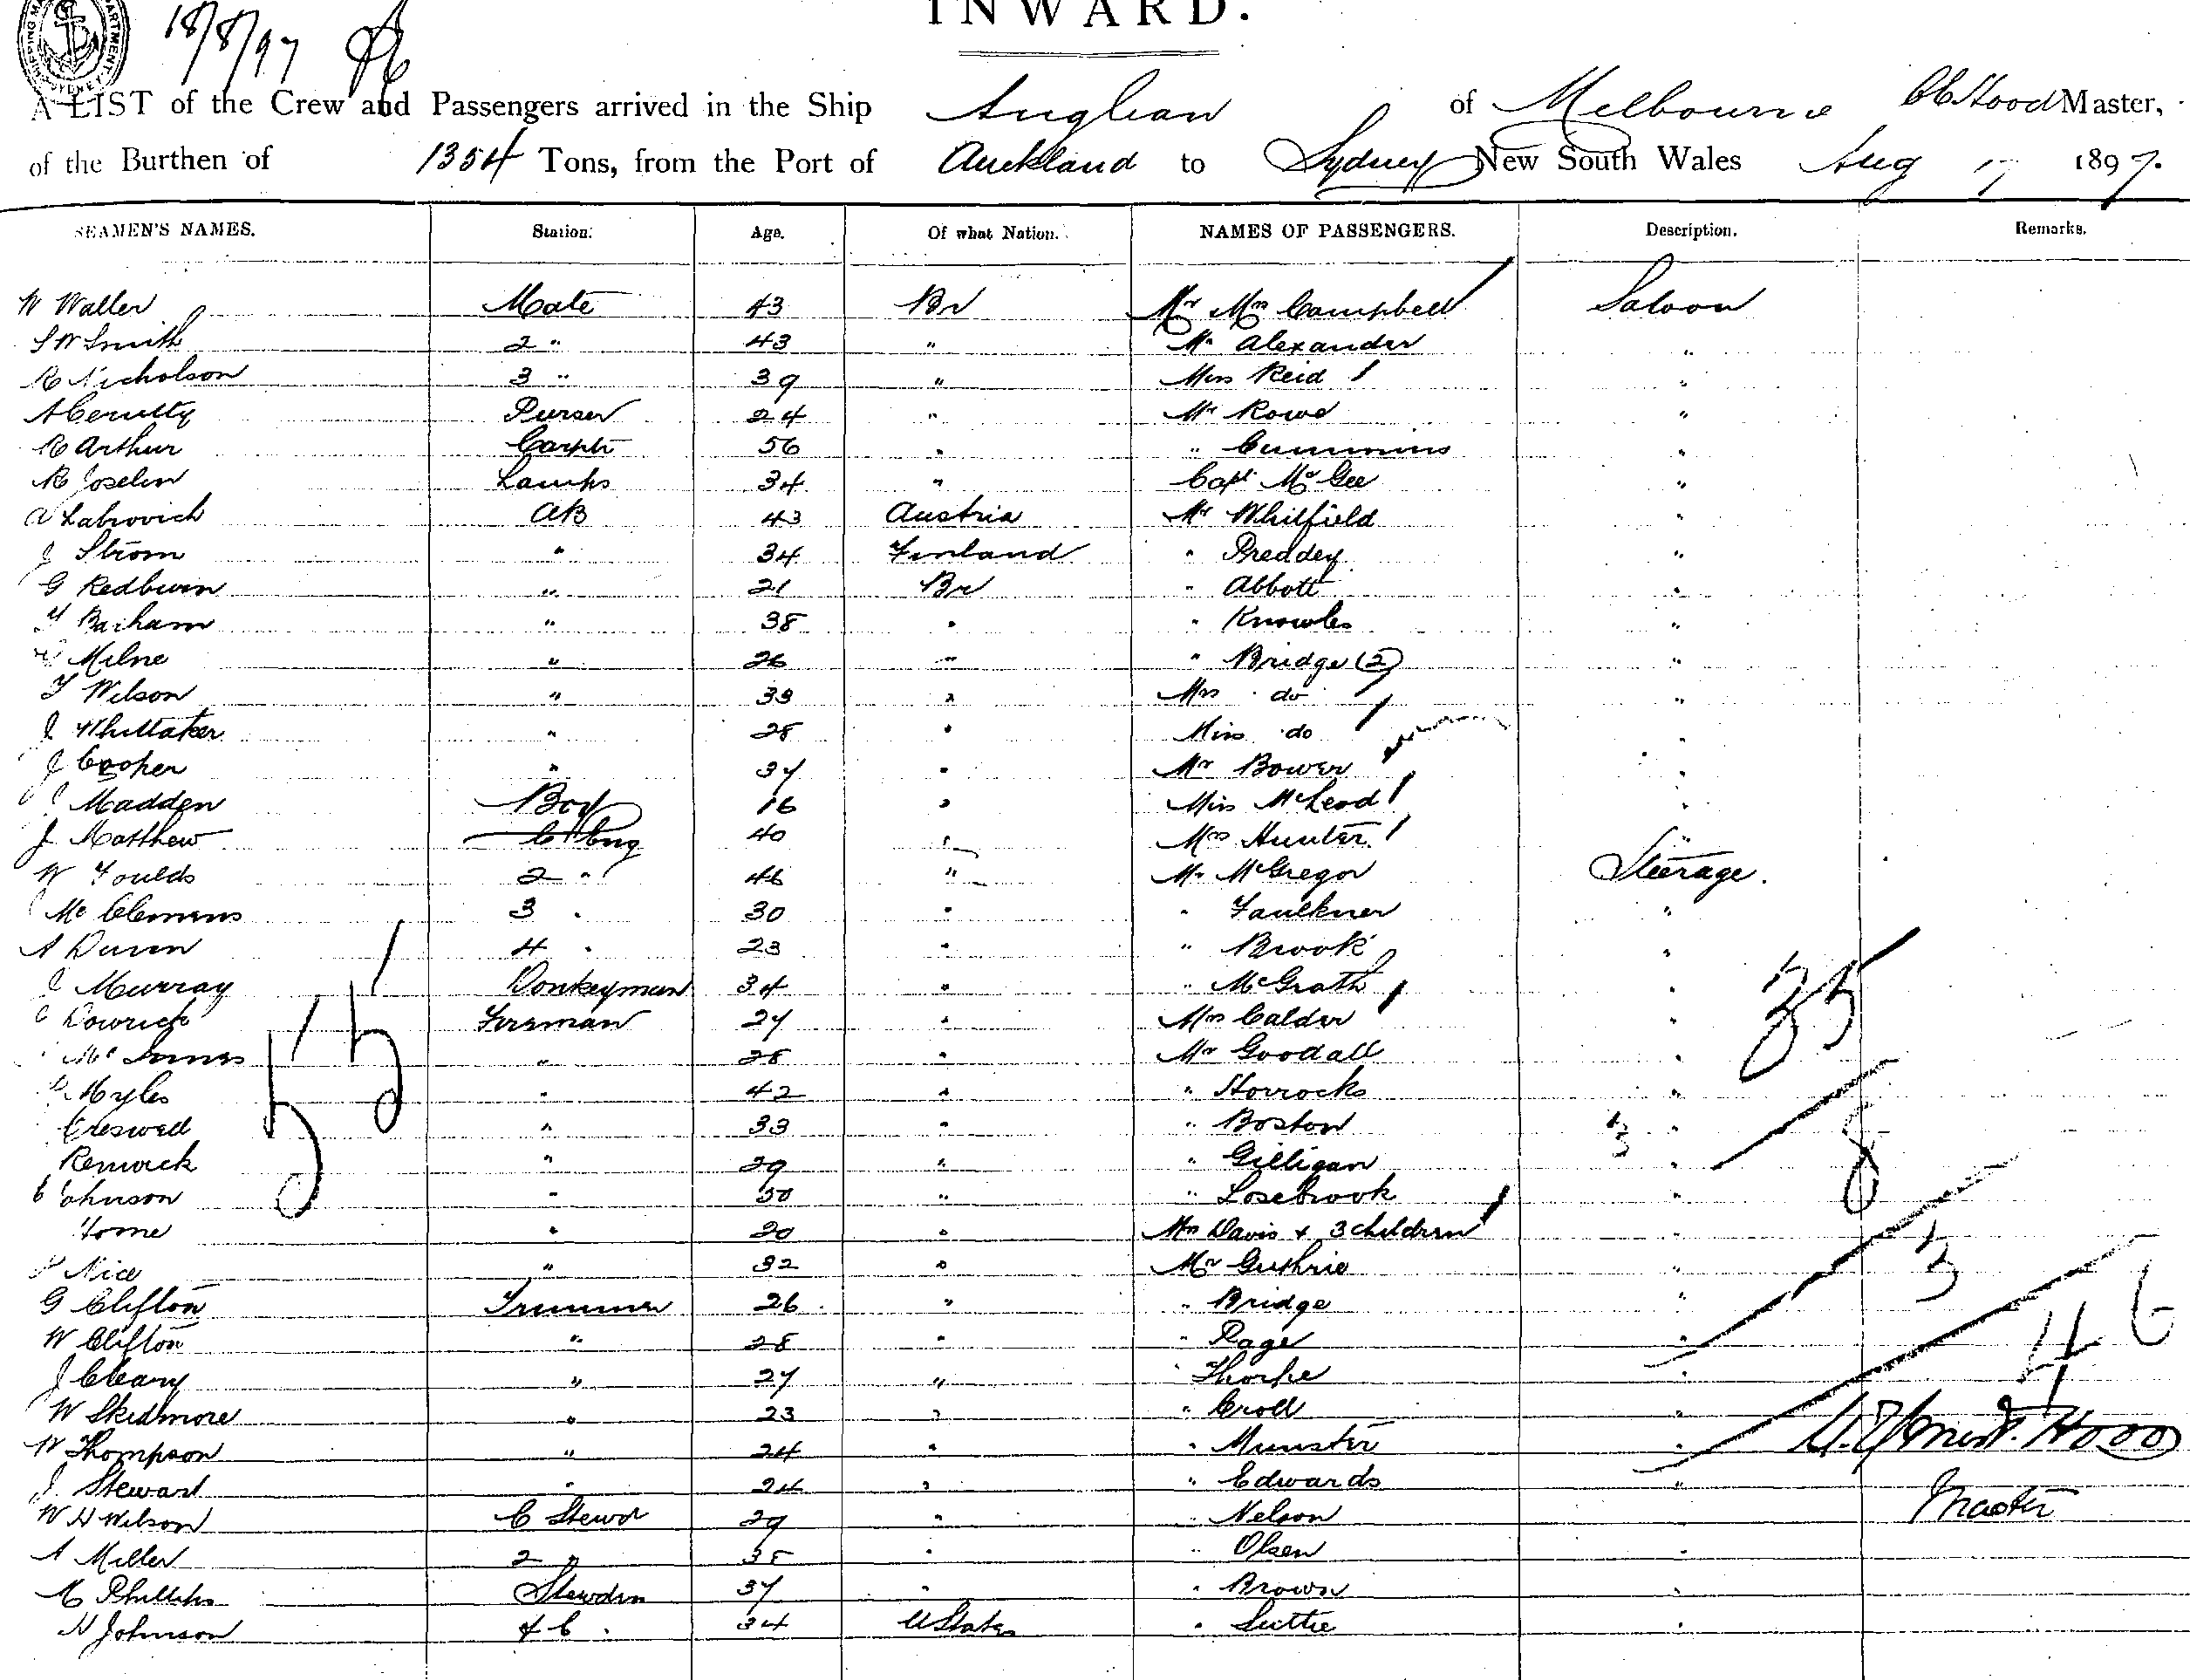 INWARD.
18/8/97
A LIST of the Crew and Passengers arrived in the Ship Anglian of Melbourne Hood Master,
of the Burthen of 1354 Tons, from the Port of Auckland to Sydney New South Wales Aug 17 1897.
SEAMEN'S NAMES. Station. Age. Of what Nation. NAMES OF PASSENGERS. Description. Remarks.
W Waller Mate 43 Br Mr Mrs Campbell Saloon
S W Smith 2 " 43 " Mr Alexander "
R Nicholson 3 " 39 " Miss Reid "
A Cerutty Purser 24 " Mr Rowe "
R Arthur Carptr 56 " " Cummins "
R Joselin Lamps 34 " Capt McGee "
A Labrovich AB 43 Austria Mr Whitfield "
J Strom " 34 Finland " Preddey "
G Redbwin " 21 Br " Abbott "
Barham " 38 " " Knowles "
Milne " 26 " " Bridge (2) "
T Wilson " 33 " Mrs do "
J Whittaker " 28 " Miss do "
J Cooper " 37 " Mr Bower "
J Madden Boy 16 " Miss McLeod "
J Matthew C Eng 40 " Mrs Hunter "
W Foulds 2 " 46 " Mr McGregor Steerage.
McClemens 3 " 30 " " Faulkner "
A Dunn 4 " 23 " " Brook "
J Murray Donkeyman 34 " " McGrath "
Dowrick Fireman 27 " Mrs Calder "
McInnes " 28 " Mr Goodall "
Myles " 42 " " Horrocks "
Creswell " 33 " " Boston "
Renwick " 29 " " Gilligan "
C Johnson " 30 " " Losebrook "
Horne " 20 " Mrs Davis & 3 children "
Nice " 32 " Mr Guthrie "
G Clifton Trimmer 26 " " Bridge "
W Clifton " 28 " " Page "
J Cleary " 27 " " Thorpe "
W Skidmore " 23 " " Croll "
W Thompson " 24 " " Munster "
J Stewart " 24 " " Edwards "
W H Wilson C Stewd 29 " " Nelson "
A Miller 2 " 38 " " Olsen "
Phillips Stewdss 37 " " Brown "
H Johnson 4 C 34 U States " Suttie "
55
35
8
3
46
Hood
Master